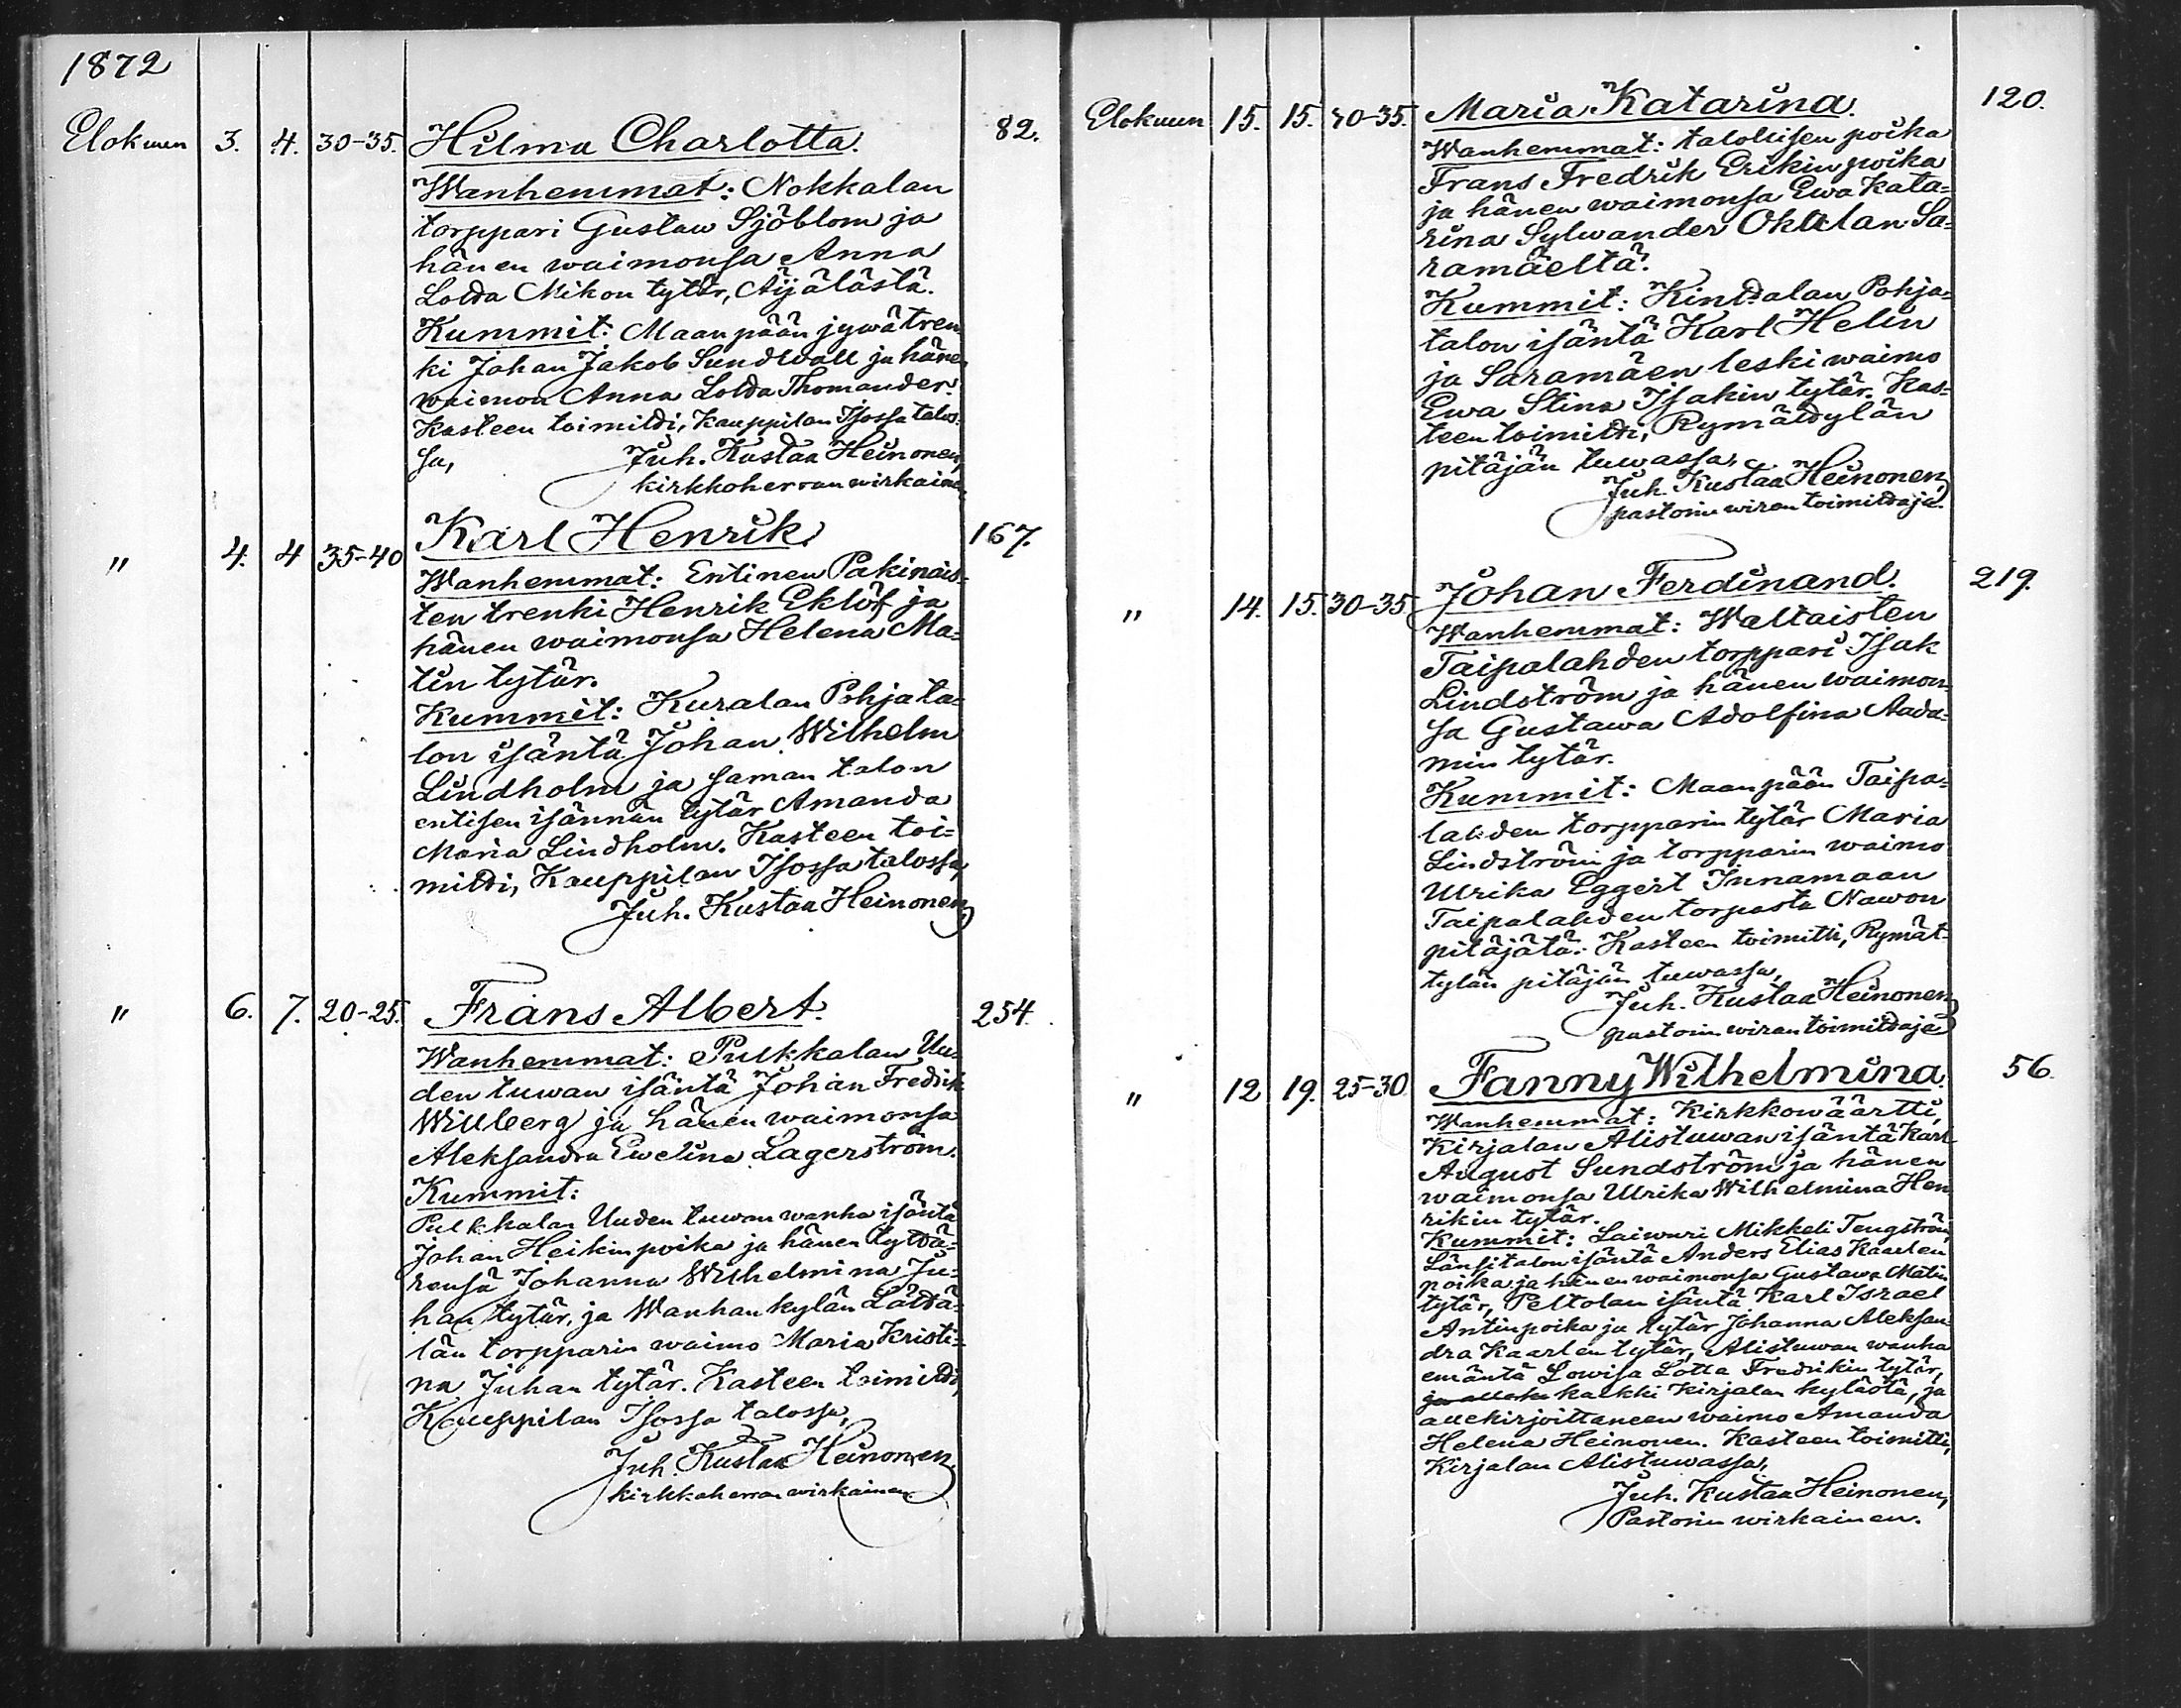 1872
Elokuun 3. 4. 30-35. Hilma Charlotta. 82.
Wanhemmat: Nokkalan
torppari Gustaw Sjöblom ja
hänen waimonsa Anna
Lotta Mikon tytär, Äijälästä.
Kummit: Maanpään jywätren
ki Johan Jakob Sundwall ja hänen
waimon Anna Lotta Thomander.
Kasteen toimitti, Kauppilan Isossa talos-
sa,
Juh. Kustaa Heinonen,
kirkkoherran wirkainen
" 4. 4 35-40 Karl Henrik. 167.
Wanhemmat: Entinen Pakinais-
ten trenki Henrik Eklöf ja
hänen waimonsa Helena Ma-
tin tytär.
Kummit: Kuralan Pohjata-
lon isäntä Johan Wilhelm
Lindholm ja saman talon
entisen isännän tytär Amanda
Maria Lindholm. Kasteen toi-
mitti, Kauppilan Isossa talossa,
Juh. Kustaa Heinonen,
" 6. 7. 20-25. Frans Albert. 254.
Wanhemmat: Pulkkalan Uu-
den tuwan isäntä Johan Fredrik
Willberg ja hänen waimonsa
Aleksandra Ewelina Lagerström.
Kummit:
Pulkkalan Uuden tuwan wanha isäntä
Johan Heikinpoika ja hänen tyttä-
rensä Johanna Wilhelmina Ju-
han tytär, ja Wanhankylän Lättä-
län torpparin waimo Maria Kristi-
na Juhan tytär. Kasteen toimitti,
Kauppilan Isossa talossa,
Juh. Kustaa Heinonen,
kirkkoherran wirkainen.
Elokuun 15. 15. 30-35. Maria Katarina. 120.
Wanhemmat: talollisen poika
Frans Fredrik Erikin poika
ja hänen waimonsa Ewa Kata-
rina Sylwander Oktilan Sa-
ramäeltä.
Kummit: Kintalan Pohja-
talon isäntä Karl Helin
ja Saramäen leskiwaimo
Ewa Stina Isakin tytär. Kas-
teen toimitti, Rymättylän
pitäjän tuwassa,
Juh. Kustaa Heinonen,
pastorin wiran toimittaja.
" 14. 15. 30-35 Johan Ferdinand. 219.
Wanhemmat: Waltaisten
Taipalahden torppari Isak
Lindström ja hänen waimon-
sa Gustawa Adolfina Aada-
min tytär.
Kummit: Maanpään Taipa-
lahden torpparin tytär Maria
Lindström ja torpparin waimo
Ulrika Eggert Innamaan
Taipalahden torpasta Nawon
pitäjätä. Kasteen toimitti, Rymät-
tylän pitäjän tuwassa,
Juh. Kustaa Heinonen
pastorin wiran toimittaja
" 12 19. 25-30 Fanny Wilhelmina. 56.
Wanhemmat: Kirkkowäärtti,
Kirjalan Alistuwan isäntä Karl
August Sundström ja hänen
waimonsa Ulrika Wilhelmina Hen
rikin tytär.
Kummit: Laiwuri Mikkeli Tengström,
Länsitalon isäntä Anders Elias Kaarlen
poika ja hänen waimonsa Gustawa Matin
tytär, Peltolan isäntä Karl Israel
Antinpoika ja tytär Johanna Aleksan-
dra Kaarlen tytär, Alistuwan wanha
emäntä Lowisa Lotta Fredrikin tytär,
kaikki Kirjalan kylästä, ja
allekirjoittaneen waimo Amanda
Helena Heinonen. Kasteen toimitti,
Kirjalan Alistuwassa,
Juh. Kustaa Heinonen,
Pastorin wirkainen.